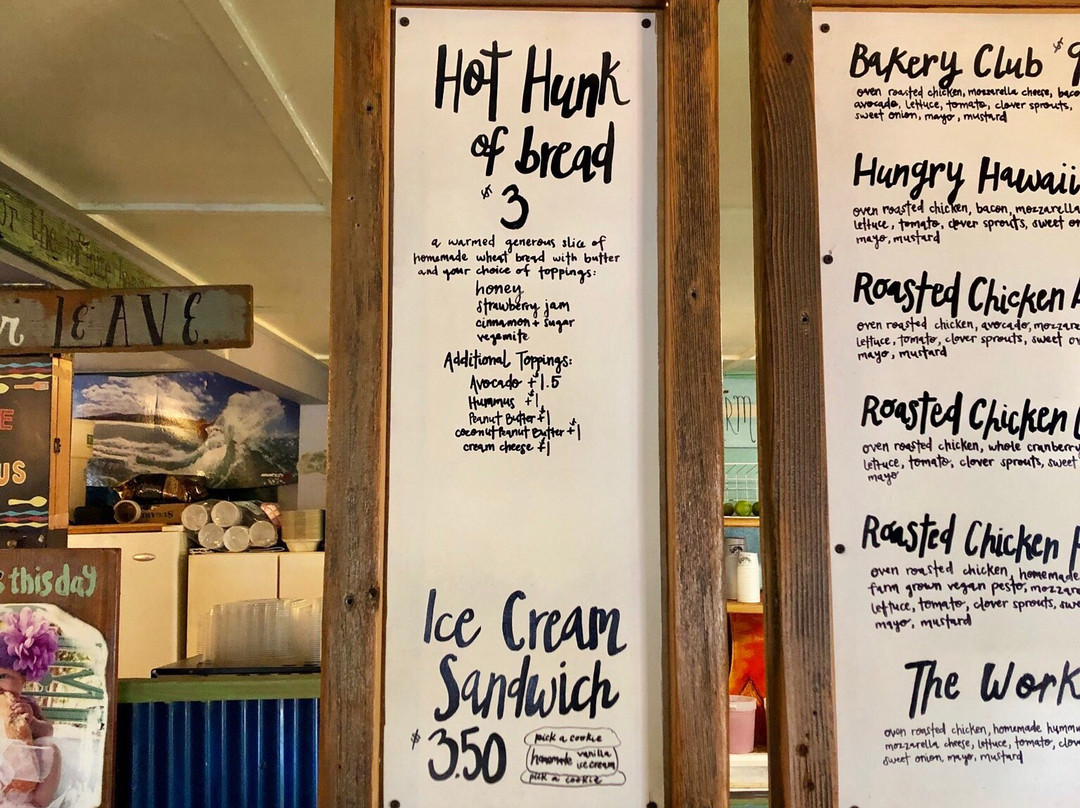 for the
LEAVE.
E
US
this day
Hot Hunk
of bread
$3
a warmed generous slice of
homemade wheat bread with butter
and your choice of toppings:
honey
strawberry jam
cinnamon + sugar
vegemite
Additional Toppings:
Avocado +$1.5
Hummus +$1
Peanut Butter +$1
coconut Peanut Butter +$1
cream cheese +$1
Ice Cream
Sandwich
$3.50
pick a cookie
homemade vanilla
ice cream
pick a cookie
Bakery Club $9
oven roasted chicken, mozzarella cheese, baco
avocado, lettuce, tomato, clover sprouts,
sweet onion, mayo, mustard
Hungry Hawaii
oven roasted chicken, bacon, mozzarella
lettuce, tomato, clover sprouts, sweet on
mayo, mustard
Roasted Chicken A
oven roasted chicken, avocado, mozzare
lettuce, tomato, clover sprouts, sweet o
mayo, mustard
Roasted Chicken
oven roasted chicken, whole cranberry
lettuce, tomato, clover sprouts, sweet
mayo
Roasted Chicken
oven roasted chicken, homemade
farm grown vegan pesto, mozzare
lettuce, tomato, clover sprouts, swe
mayo, mustard
The Work
oven roasted chicken, homemade hummu
mozzarella cheese, lettuce, tomato, clov
sweet onion, mayo, mustard